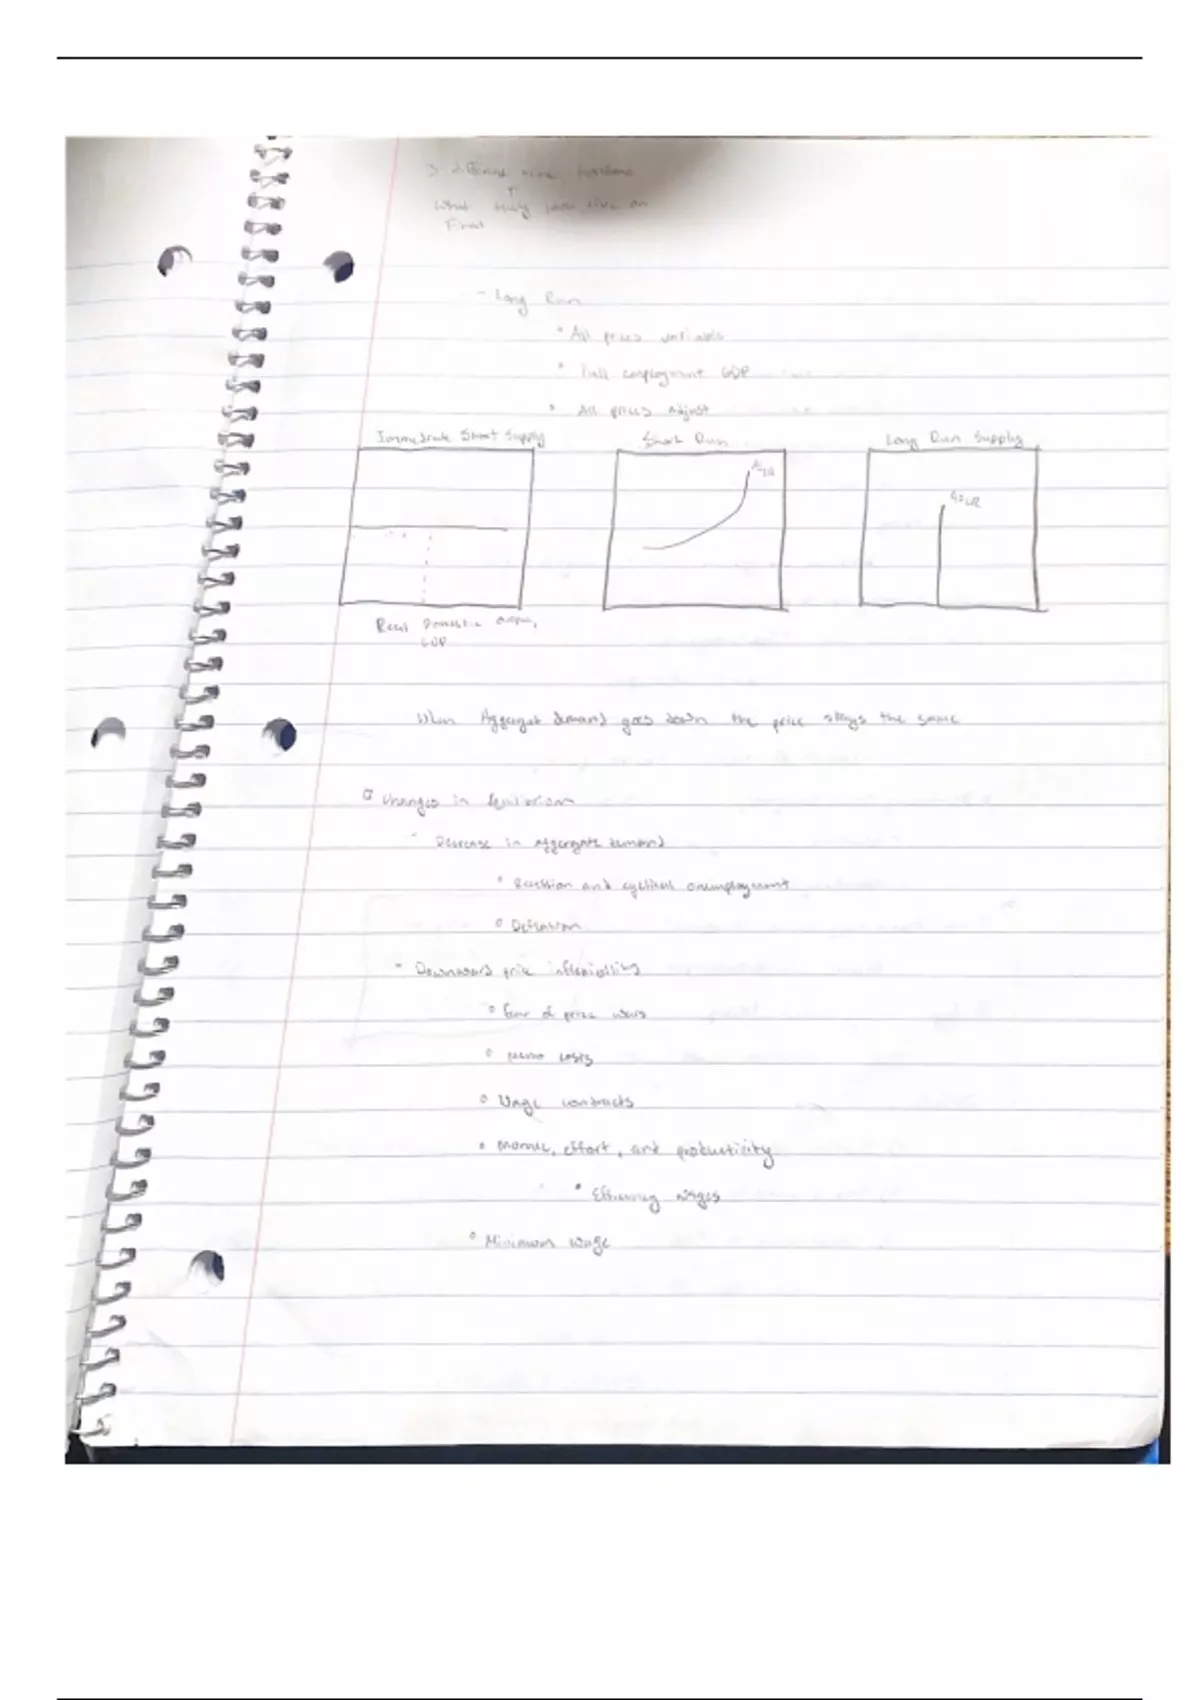 3 different time horizons
What
on
Final
- Long Run
° All prices variable
° Full employment GDP
° All prices adjust
Immediate Short Supply
Short Run
Long Run Supply
ASLR
Real Domestic output,
GDP
When Aggregat demand goes down the price stays the same
Changes in Equilibrium
- Decrease in Aggergate demand
° Recession and cyclical unemployment
° Deflation
- Downward price inflexibility
° Fear of price wars
° Menu costs
° Wage contracts
° Morale, effort, and productivity
° Efficiency wages
° Minimum wage